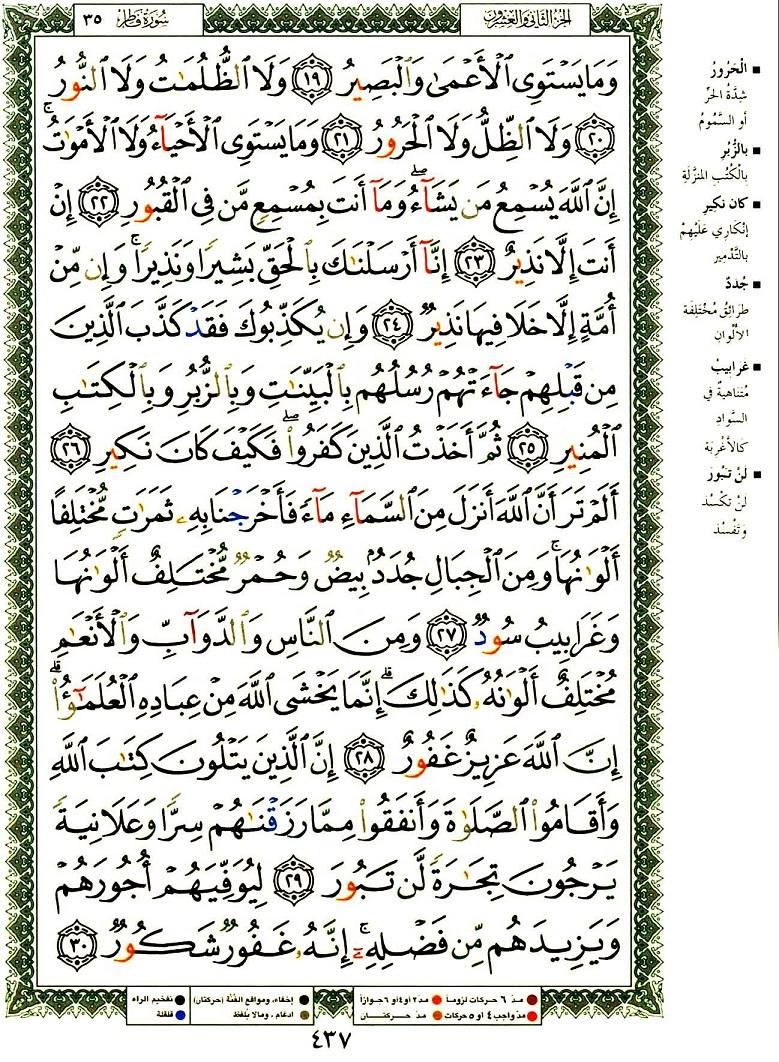 سُورَةُ فَاطِر ٣٥
الجزء الثاني والعشرون
وَمَا يَسْتَوِى ٱلْأَعْمَىٰ وَٱلْبَصِيرُ ﴿١٩﴾ وَلَا ٱلظُّلُمَٰتُ وَلَا ٱلنُّورُ
﴿٢٠﴾ وَلَا ٱلظِّلُّ وَلَا ٱلْحَرُورُ ﴿٢١﴾ وَمَا يَسْتَوِى ٱلْأَحْيَآءُ وَلَا ٱلْأَمْوَٰتُ ۚ
إِنَّ ٱللَّهَ يُسْمِعُ مَن يَشَآءُ ۖ وَمَآ أَنتَ بِمُسْمِعٍ مَّن فِى ٱلْقُبُورِ ﴿٢٢﴾ إِنْ
أَنتَ إِلَّا نَذِيرٌ ﴿٢٣﴾ إِنَّآ أَرْسَلْنَٰكَ بِٱلْحَقِّ بَشِيرًا وَنَذِيرًا ۚ وَإِن مِّنْ
أُمَّةٍ إِلَّا خَلَا فِيهَا نَذِيرٌ ﴿٢٤﴾ وَإِن يُكَذِّبُوكَ فَقَدْ كَذَّبَ ٱلَّذِينَ
مِن قَبْلِهِمْ جَآءَتْهُمْ رُسُلُهُم بِٱلْبَيِّنَٰتِ وَبِٱلزُّبُرِ وَبِٱلْكِتَٰبِ
ٱلْمُنِيرِ ﴿٢٥﴾ ثُمَّ أَخَذْتُ ٱلَّذِينَ كَفَرُوا۟ ۖ فَكَيْفَ كَانَ نَكِيرِ ﴿٢٦﴾
أَلَمْ تَرَ أَنَّ ٱللَّهَ أَنزَلَ مِنَ ٱلسَّمَآءِ مَآءً فَأَخْرَجْنَا بِهِۦ ثَمَرَٰتٍ مُّخْتَلِفًا
أَلْوَٰنُهَا ۚ وَمِنَ ٱلْجِبَالِ جُدَدٌۢ بِيضٌ وَحُمْرٌ مُّخْتَلِفٌ أَلْوَٰنُهَا
وَغَرَابِيبُ سُودٌ ﴿٢٧﴾ وَمِنَ ٱلنَّاسِ وَٱلدَّوَآبِّ وَٱلْأَنْعَٰمِ
مُخْتَلِفٌ أَلْوَٰنُهُۥ كَذَٰلِكَ ۗ إِنَّمَا يَخْشَى ٱللَّهَ مِنْ عِبَادِهِ ٱلْعُلَمَٰٓؤُا۟ ۗ
إِنَّ ٱللَّهَ عَزِيزٌ غَفُورٌ ﴿٢٨﴾ إِنَّ ٱلَّذِينَ يَتْلُونَ كِتَٰبَ ٱللَّهِ
وَأَقَامُوا۟ ٱلصَّلَوٰةَ وَأَنفَقُوا۟ مِمَّا رَزَقْنَٰهُمْ سِرًّا وَعَلَانِيَةً
يَرْجُونَ تِجَٰرَةً لَّن تَبُورَ ﴿٢٩﴾ لِيُوَفِّيَهُمْ أُجُورَهُمْ
وَيَزِيدَهُم مِّن فَضْلِهِۦٓ ۚ إِنَّهُۥ غَفُورٌ شَكُورٌ ﴿٣٠﴾
■ الْحَرُورُ
شِدَّةُ الحَرِّ
أو السَّمُومُ
■ بالزُّبُرِ
بِالْكُتُبِ المنزَّلَةِ
■ كان نكيرِ
إنْكارِي عَلَيْهِمْ
بالتَّدْمِيرِ
■ جُدَدٌ
طَرَائِقُ مُخْتَلِفَة
الألْوان
■ غَرَابِيبُ
مُتَناهِيةٌ في
السَّوادِ
كَالأغْرِبَة
■ لَنْ تَبُورَ
لَنْ تكْسُد
وَتَفْسُدَ
مدّ ٦ حركات لزوماً
مدّ ٢ أو ٤ أو ٦ جوازاً
إخفاء، ومواقع الغُنَّة (حركتان)
تفخيم الراء
مدّ واجب ٤ او ٥ حركات
مدّ حركتان
ادغام، ومالا يُلفظ
قلقلة
٤٣٧